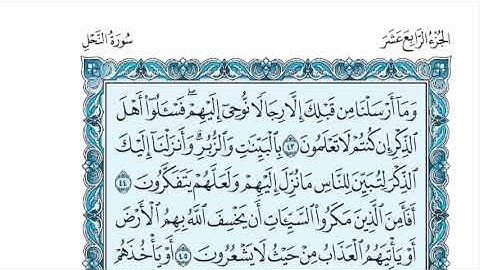 الجزء الرابع عشر سورة النحل
وَمَآ أَرْسَلْنَا مِن قَبْلِكَ إِلَّا رِجَالًا نُّوحِىٓ إِلَيْهِمْ ۖ فَسْـَٔلُوٓا۟ أَهْلَ
ٱلذِّكْرِ إِن كُنتُمْ لَا تَعْلَمُونَ ٤٣ بِٱلْبَيِّنَـٰتِ وَٱلزُّبُرِ ۗ وَأَنزَلْنَآ إِلَيْكَ
ٱلذِّكْرَ لِتُبَيِّنَ لِلنَّاسِ مَا نُزِّلَ إِلَيْهِمْ وَلَعَلَّهُمْ يَتَفَكَّرُونَ ٤٤
أَفَأَمِنَ ٱلَّذِينَ مَكَرُوا۟ ٱلسَّيِّـَٔاتِ أَن يَخْسِفَ ٱللَّهُ بِهِمُ ٱلْأَرْضَ
أَوْ يَأْتِيَهُمُ ٱلْعَذَابُ مِنْ حَيْثُ لَا يَشْعُرُونَ ٤٥ أَوْ يَأْخُذَهُمْ